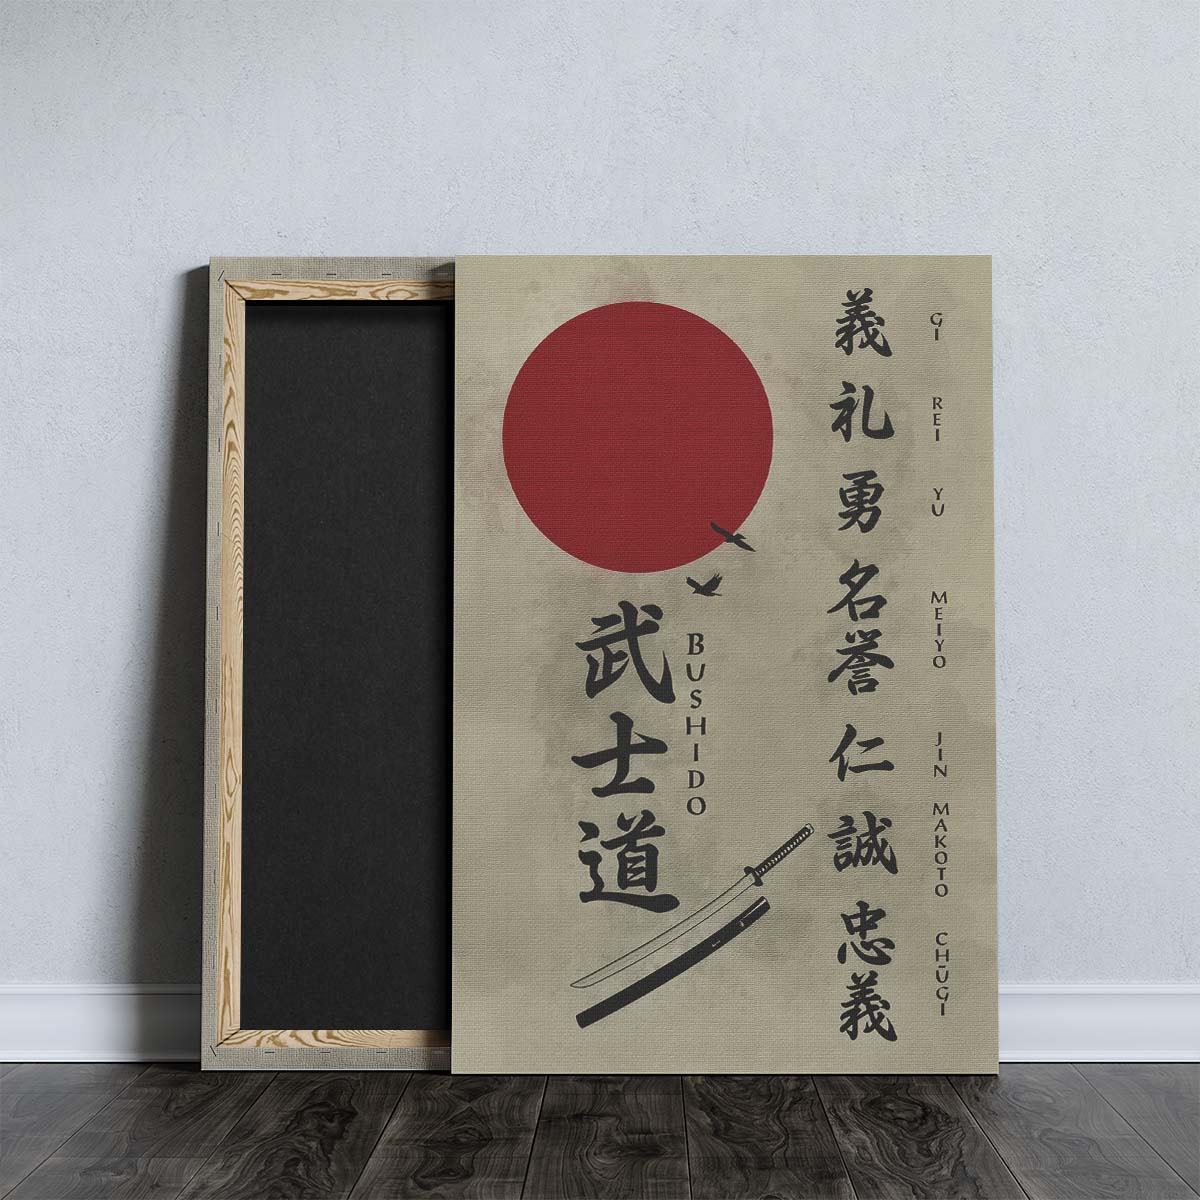 武士道
BUSHIDO
義
礼
勇
名誉
仁
誠
忠義
GI
REI
YU
MEIYO
JIN
MAKOTO
CHŪGI